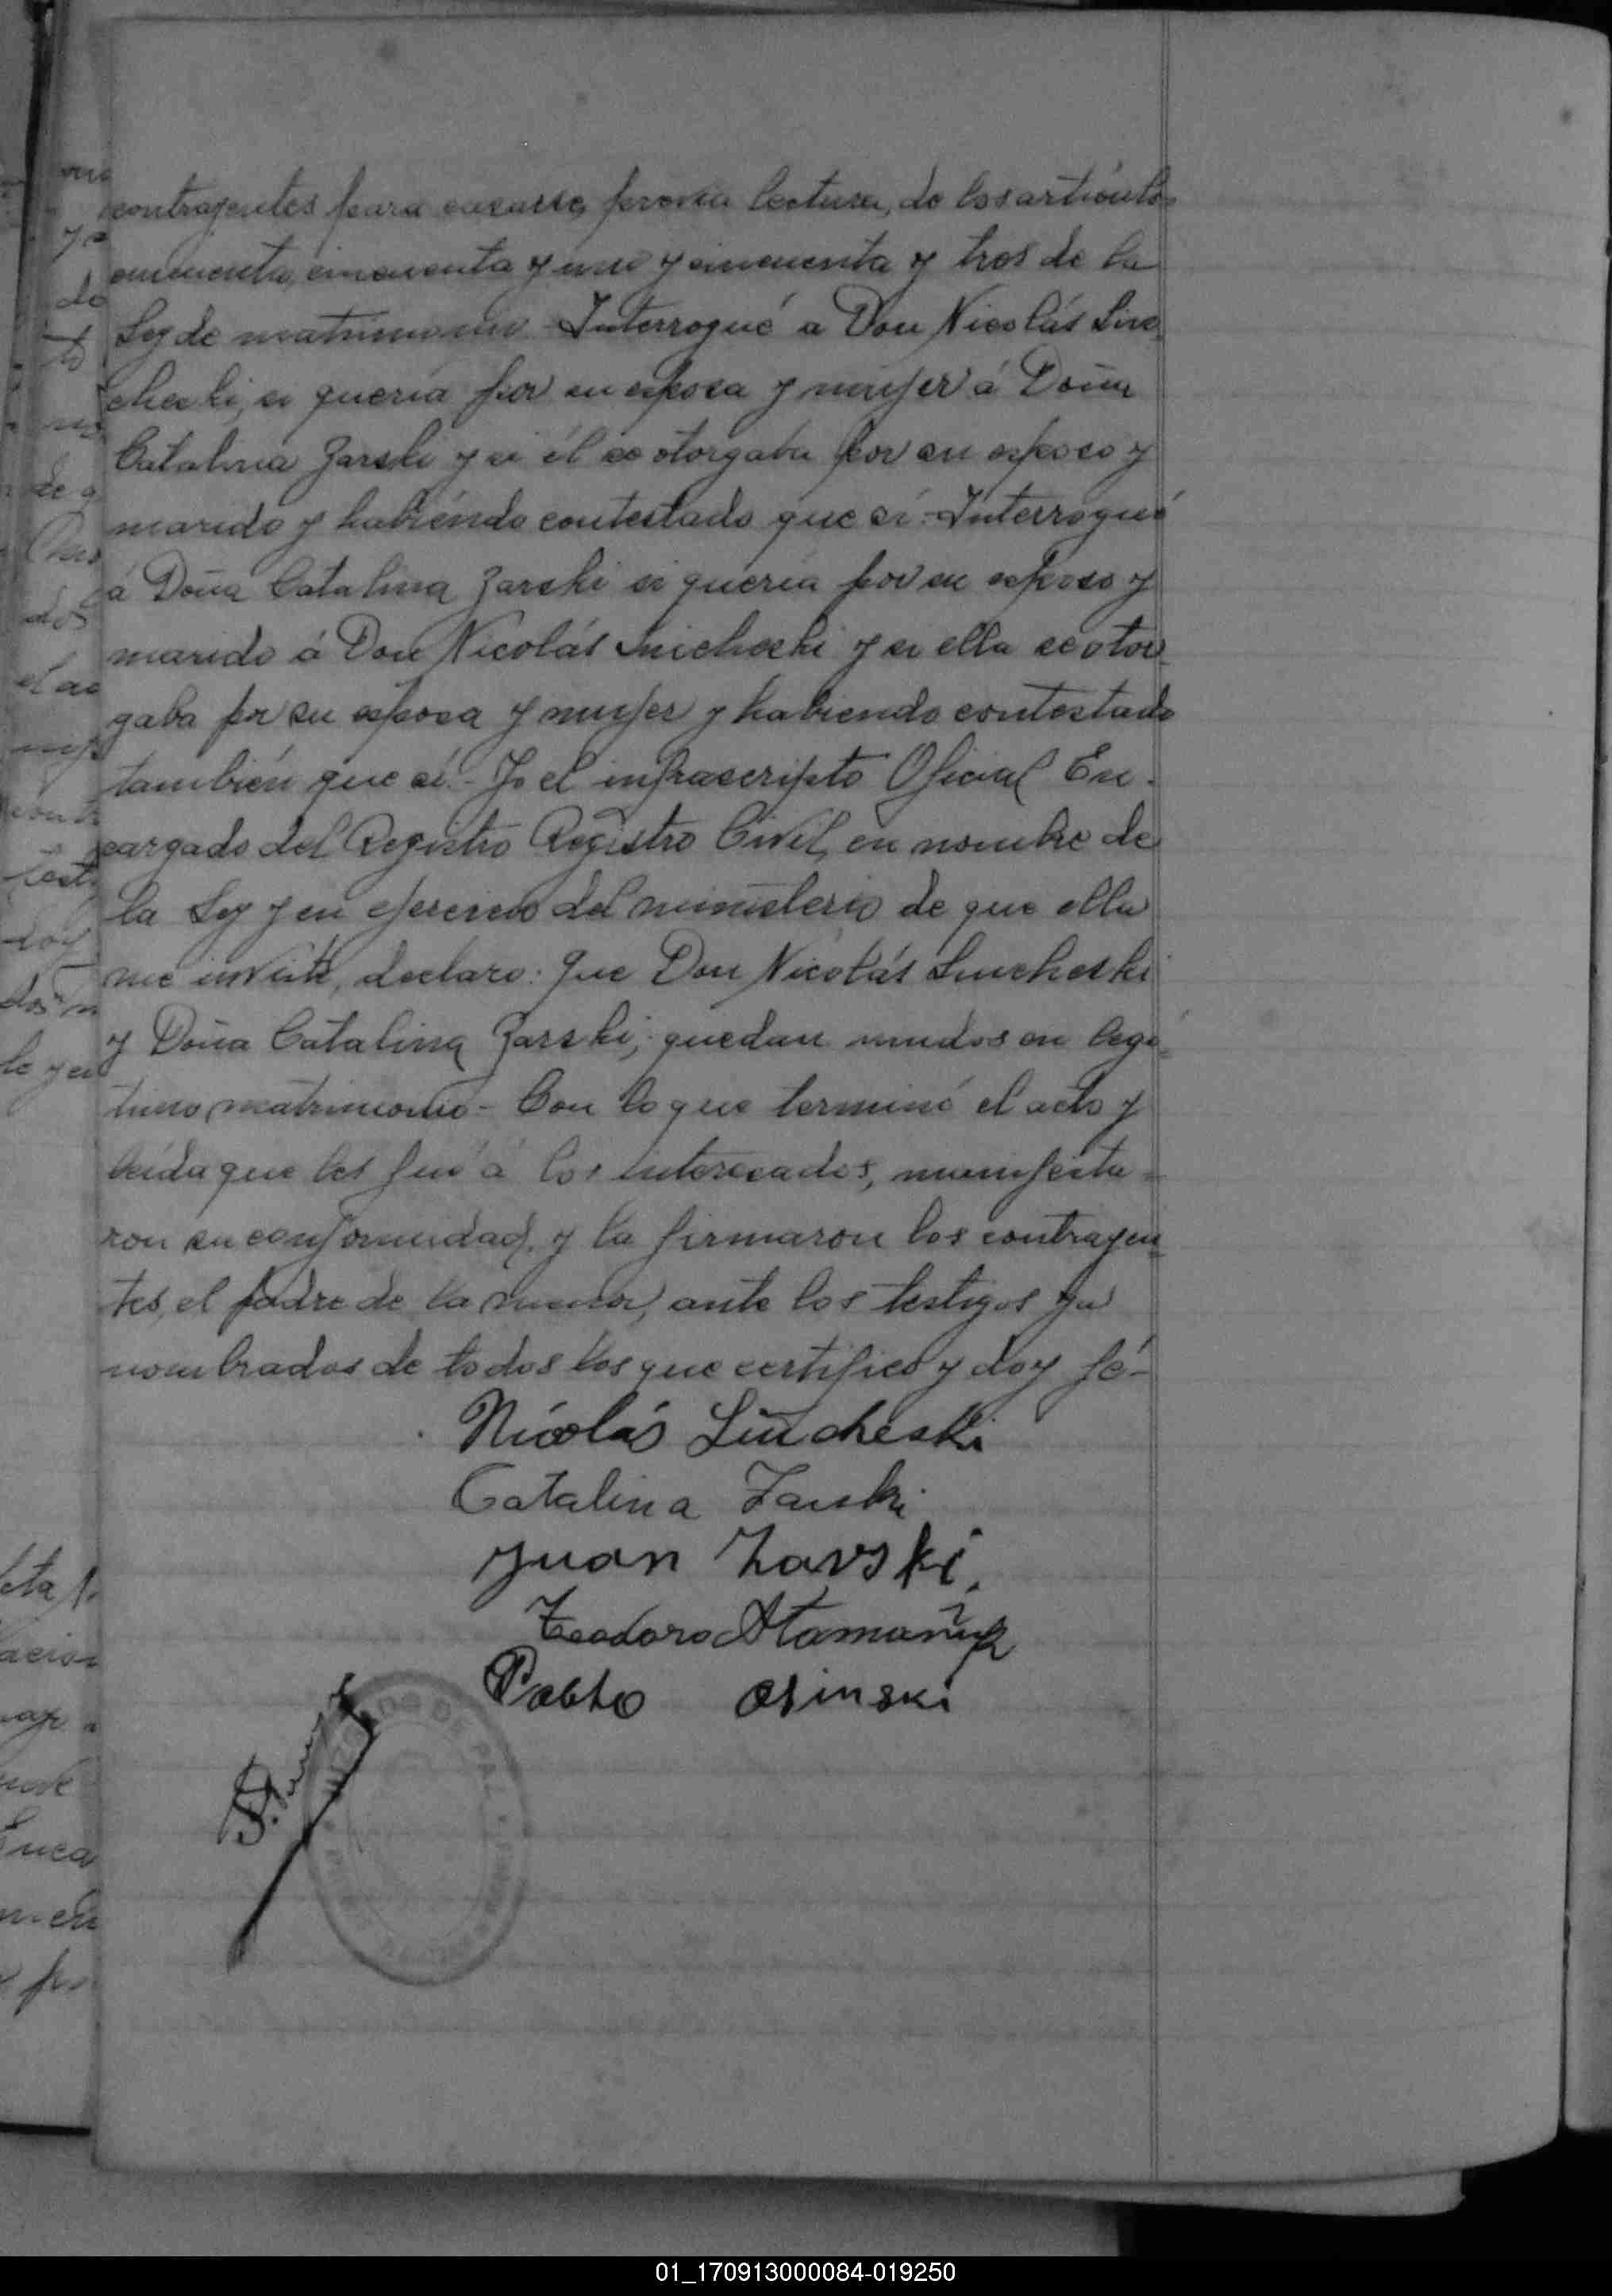 contrayentes para casarse, previa lectura, de los artículos
cincuenta, cincuenta y uno y cincuenta y tres de la
Ley de matrimonio - Interrogué a Don Nicolás Lin-
cheski, si quería por su esposa y mujer á Doña
Catalina Zarski y si él se otorgaba por su esposo y
marido y habiéndo contestado que sí - Interrogué
á Doña Catalina Zarski si quería por su esposo y
marido á Don Nicolás Lincheski y si ella se otor-
gaba por su esposa y mujer y habiendo contestado
también que sí - Yo el infrascripto Oficial En-
cargado del Registro Registro Civil, en nombre de
la Ley y en ejercicio del ministerio de que ella
me inviste, declaro: Que Don Nicolás Lincheski
y Doña Catalina Zarski, quedan unidos en legí-
timo matrimonio - Con lo que terminó el acto y
leída que les fué á los interesados, manifesta-
ron su conformidad, y la firmaron los contrayen-
tes, el padre de la menor, ante los testigos ya
nombrados de todos los que certifico y doy fé -
Nicolás Lincheski
Catalina Zarski
Juan Zarski
Teodoro
Pablo Osinski
01_170913000084-019250